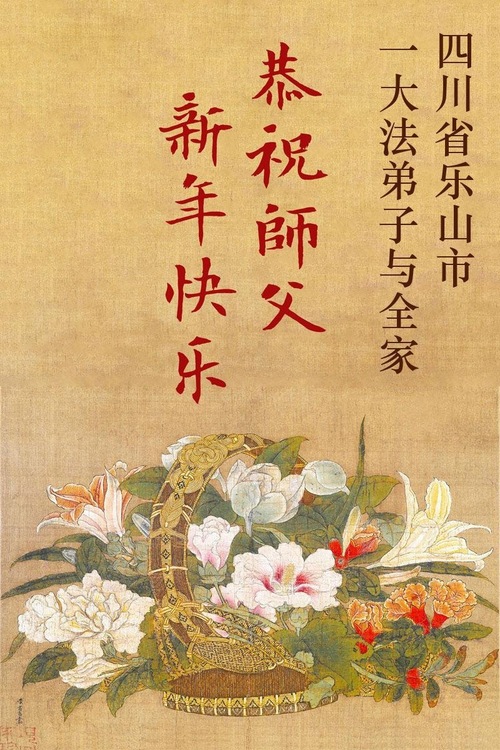 四川省乐山市
一大法弟子与全家
恭祝師父
新年快乐